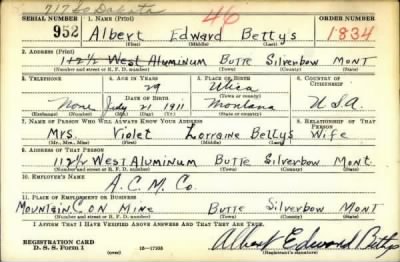 717 So Dakota
46
SERIAL NUMBER 1. NAME (Print) ORDER NUMBER
952 Albert Edward Bettys 1834
(First) (Middle) (Last)
2. ADDRESS (Print)
112½ West Aluminum Butte Silverbow Mont
(Number and street or R. F. D. number) (Town) (County) (State)
3. TELEPHONE 4. AGE IN YEARS 5. PLACE OF BIRTH 6. COUNTRY OF CITIZENSHIP
29 Utica
DATE OF BIRTH
None July 21 1911 Montana USA
(Exchange) (Number) (Mo.) (Day) (Yr.) (State or country)
7. NAME OF PERSON WHO WILL ALWAYS KNOW YOUR ADDRESS 8. RELATIONSHIP OF THAT PERSON
Mrs. Violet Lorraine Bettys Wife
(Mr., Mrs., Miss) (First) (Middle) (Last)
9. ADDRESS OF THAT PERSON
112½ West Aluminum Butte Silverbow Mont.
(Number and street or R. F. D. number) (Town) (County) (State)
10. EMPLOYER'S NAME
A.C.M. Co.
11. PLACE OF EMPLOYMENT OR BUSINESS
Mountain Con Mine Butte Silverbow Mont
(Number and street or R. F. D. number) (Town) (County) (State)
I AFFIRM THAT I HAVE VERIFIED ABOVE ANSWERS AND THAT THEY ARE TRUE.
REGISTRATION CARD
D. S. S. Form 1 (over) 16—17105 Albert Edward Bettys
(Registrant's signature)